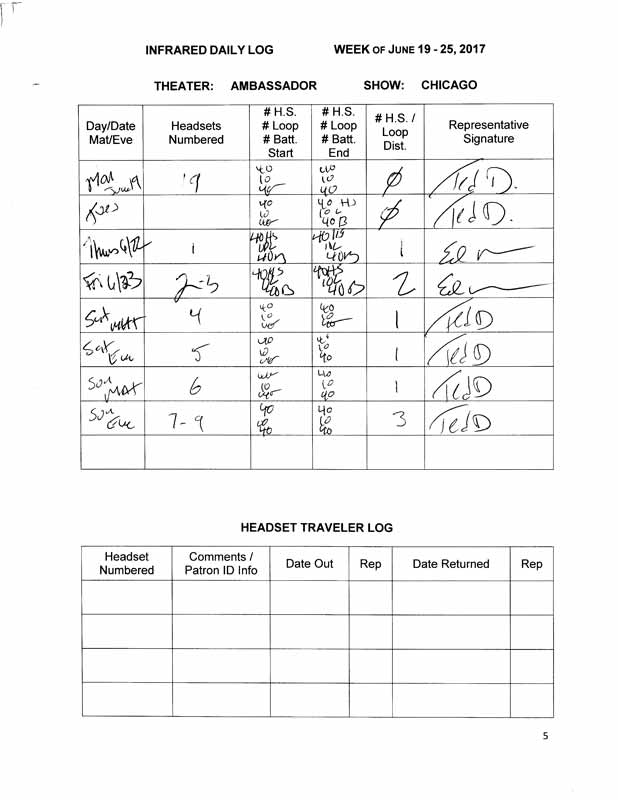 INFRARED DAILY LOG WEEK OF JUNE 19 - 25, 2017
THEATER: AMBASSADOR SHOW: CHICAGO
Day/Date
Mat/Eve
Headsets
Numbered
# H.S.
# Loop
# Batt.
Start
# H.S.
# Loop
# Batt.
End
# H.S. /
Loop
Dist.
Representative
Signature
Mon
June 19
9
40
10
40
40
10
40
Ø
Ted D.
Tues
40
10
40
40 HS
10 L
40 B
Ø
Ted D.
Thurs 6/22
1
40HS
10L
40B
40HS
10L
40B
1
Ed
Fri 6/23
2-3
40HS
10L
40B
40HS
10L
40B
2
Ed
Sat Matt
4
40
10
40
40
10
40
1
Ted D
Sat
Eve
5
40
10
40
40
10
40
1
Ted D
Sun
Mat
6
40
10
40
40
10
40
1
Ted D
Sun
Eve
7-9
40
10
40
40
10
40
3
Ted D
HEADSET TRAVELER LOG
Headset
Numbered
Comments /
Patron ID Info
Date Out
Rep
Date Returned
Rep
5